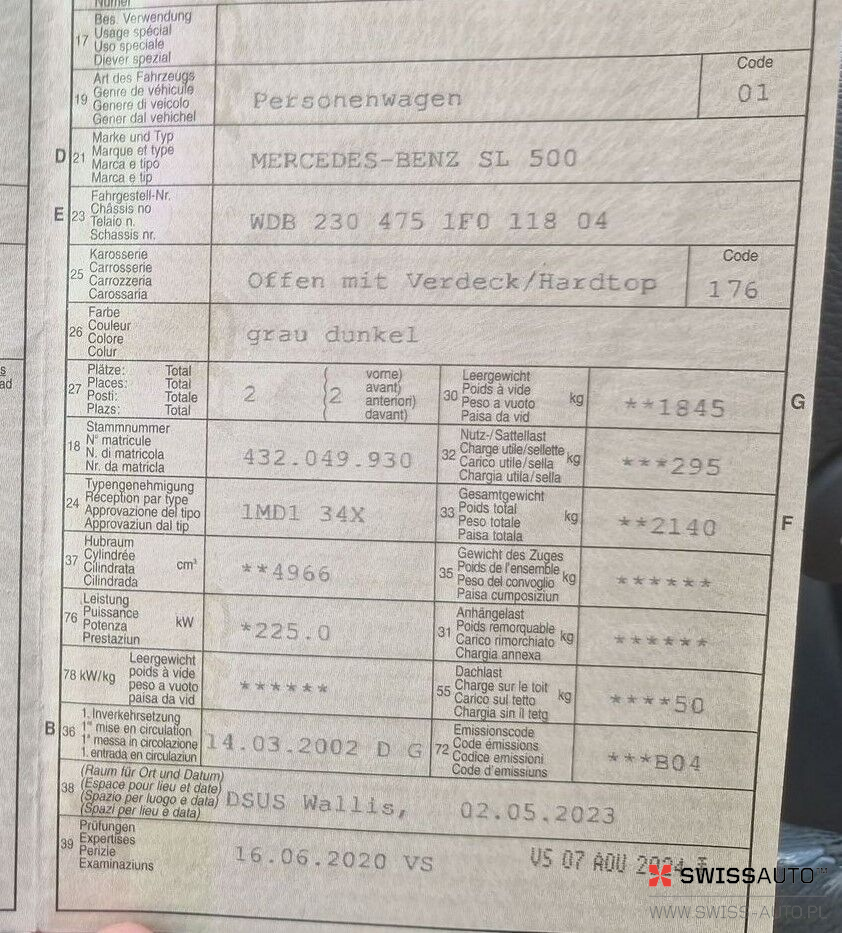 Numer
17
Bes. Verwendung
Usage spécial
Uso speciale
Diever spezial
19
Art des Fahrzeugs
Genre de véhicule
Genere di veicolo
Gener dal vehichel
Personenwagen
Code
01
D 21
Marke und Typ
Marque et type
Marca e tipo
Marca e tip
MERCEDES-BENZ SL 500
E 23
Fahrgestell-Nr.
Châssis no
Telaio n.
Schassis nr.
WDB 230 475 1F0 118 04
25
Karosserie
Carrosserie
Carrozzeria
Carossaria
Offen mit Verdeck/Hardtop
Code
176
26
Farbe
Couleur
Colore
Colur
grau dunkel
27
Plätze: Total
Places: Total
Posti: Totale
Plazs: Total
2
(2
vorne)
avant)
anteriori)
davant)
30
Leergewicht
Poids à vide
Peso a vuoto
Paisa da vid
kg
**1845
G
18
Stammnummer
N° matricule
N. di matricola
Nr. da matricla
432.049.930
32
Nutz-/Sattellast
Charge utile/sellette
Carico utile/sella
Chargia utila/sella
kg
***295
24
Typengenehmigung
Réception par type
Approvazione del tipo
Approvaziun dal tip
1MD1 34X
33
Gesamtgewicht
Poids total
Peso totale
Paisa totala
kg
**2140
F
37
Hubraum
Cylindrée
Cilindrata
Cilindrada
cm³
**4966
35
Gewicht des Zuges
Poids de l'ensemble
Peso del convoglio
Paisa cumposiziun
kg
******
76
Leistung
Puissance
Potenza
Prestaziun
kW
*225.0
31
Anhängelast
Poids remorquable
Carico rimorchiato
Chargia annexa
kg
******
78 kW/kg
Leergewicht
poids à vide
peso a vuoto
paisa da vid
******
55
Dachlast
Charge sur le toit
Carico sul tetto
Chargia sin il tetg
kg
****50
B 36
1. Inverkehrsetzung
1re mise en circulation
1a messa in circolazione
1. entrada en circulaziun
14.03.2002 D G
72
Emissionscode
Code émissions
Codice emissioni
Code d'emissiuns
***B04
38
(Raum für Ort und Datum)
(Espace pour lieu et date)
(Spazio per luogo e data)
(Spazi per lieu e data)
DSUS Wallis, 02.05.2023
39
Prüfungen
Expertises
Perizie
Examinaziuns
16.06.2020 VS
VS 07 AOU 2024
SWISSAUTO
WWW.SWISS-AUTO.PL